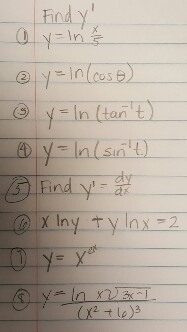 Find y'
① y = ln x/5
② y = ln (cos θ)
③ y = ln (tan⁻¹ t)
④ y = ln (sin⁻¹ t.)
⑤ Find y' = dy/dx
⑥ x ln y + y ln x = 2
⑦ y = x^(ex)
⑧ y = ln x2√(3x-1) / (x² + 16)³